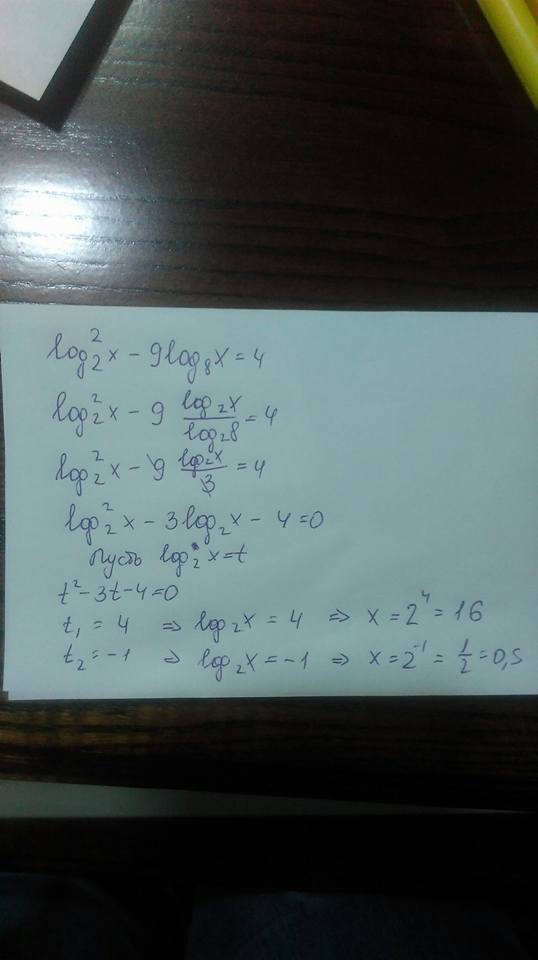 log₂²x − 9log₈x = 4
log₂²x − 9 log₂x/log₂8 = 4
log₂²x − 9 log₂x/3 = 4
log₂²x − 3log₂x − 4 = 0
Пусть log₂x = t
t² − 3t − 4 = 0
t₁ = 4 ⇒ log₂x = 4 ⇒ x = 2⁴ = 16
t₂ = −1 ⇒ log₂x = −1 ⇒ x = 2⁻¹ = 1/2 = 0,5